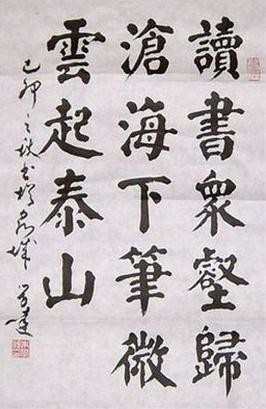 讀書衆壑歸
滄海下筆微
雲起泰山
己卯之秋書於